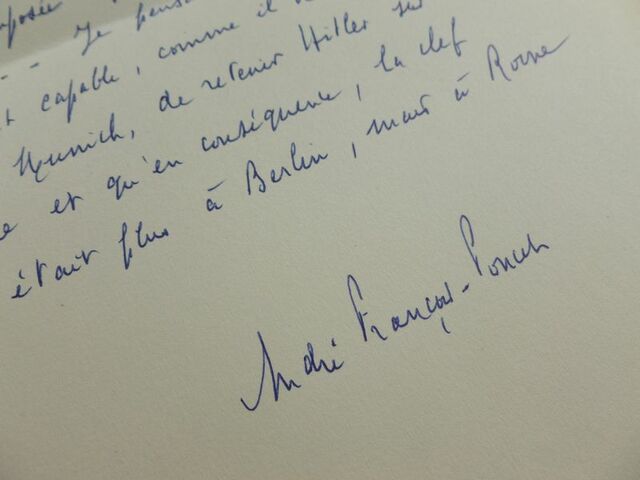 posée
- - Je pensa
t capable, comme il
Munich, de retenir Hitler sur
e et qu'en conséquence, la clef
était plus à Berlin, mais à Rome
André François-Poncet